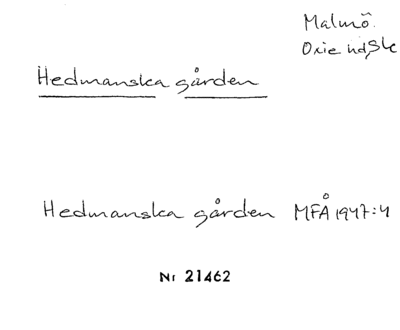 Malmö.
Oxie hd, Sk
Hedmanska gården
Hedmanska gården MFÅ 1947:4
Nr 21462